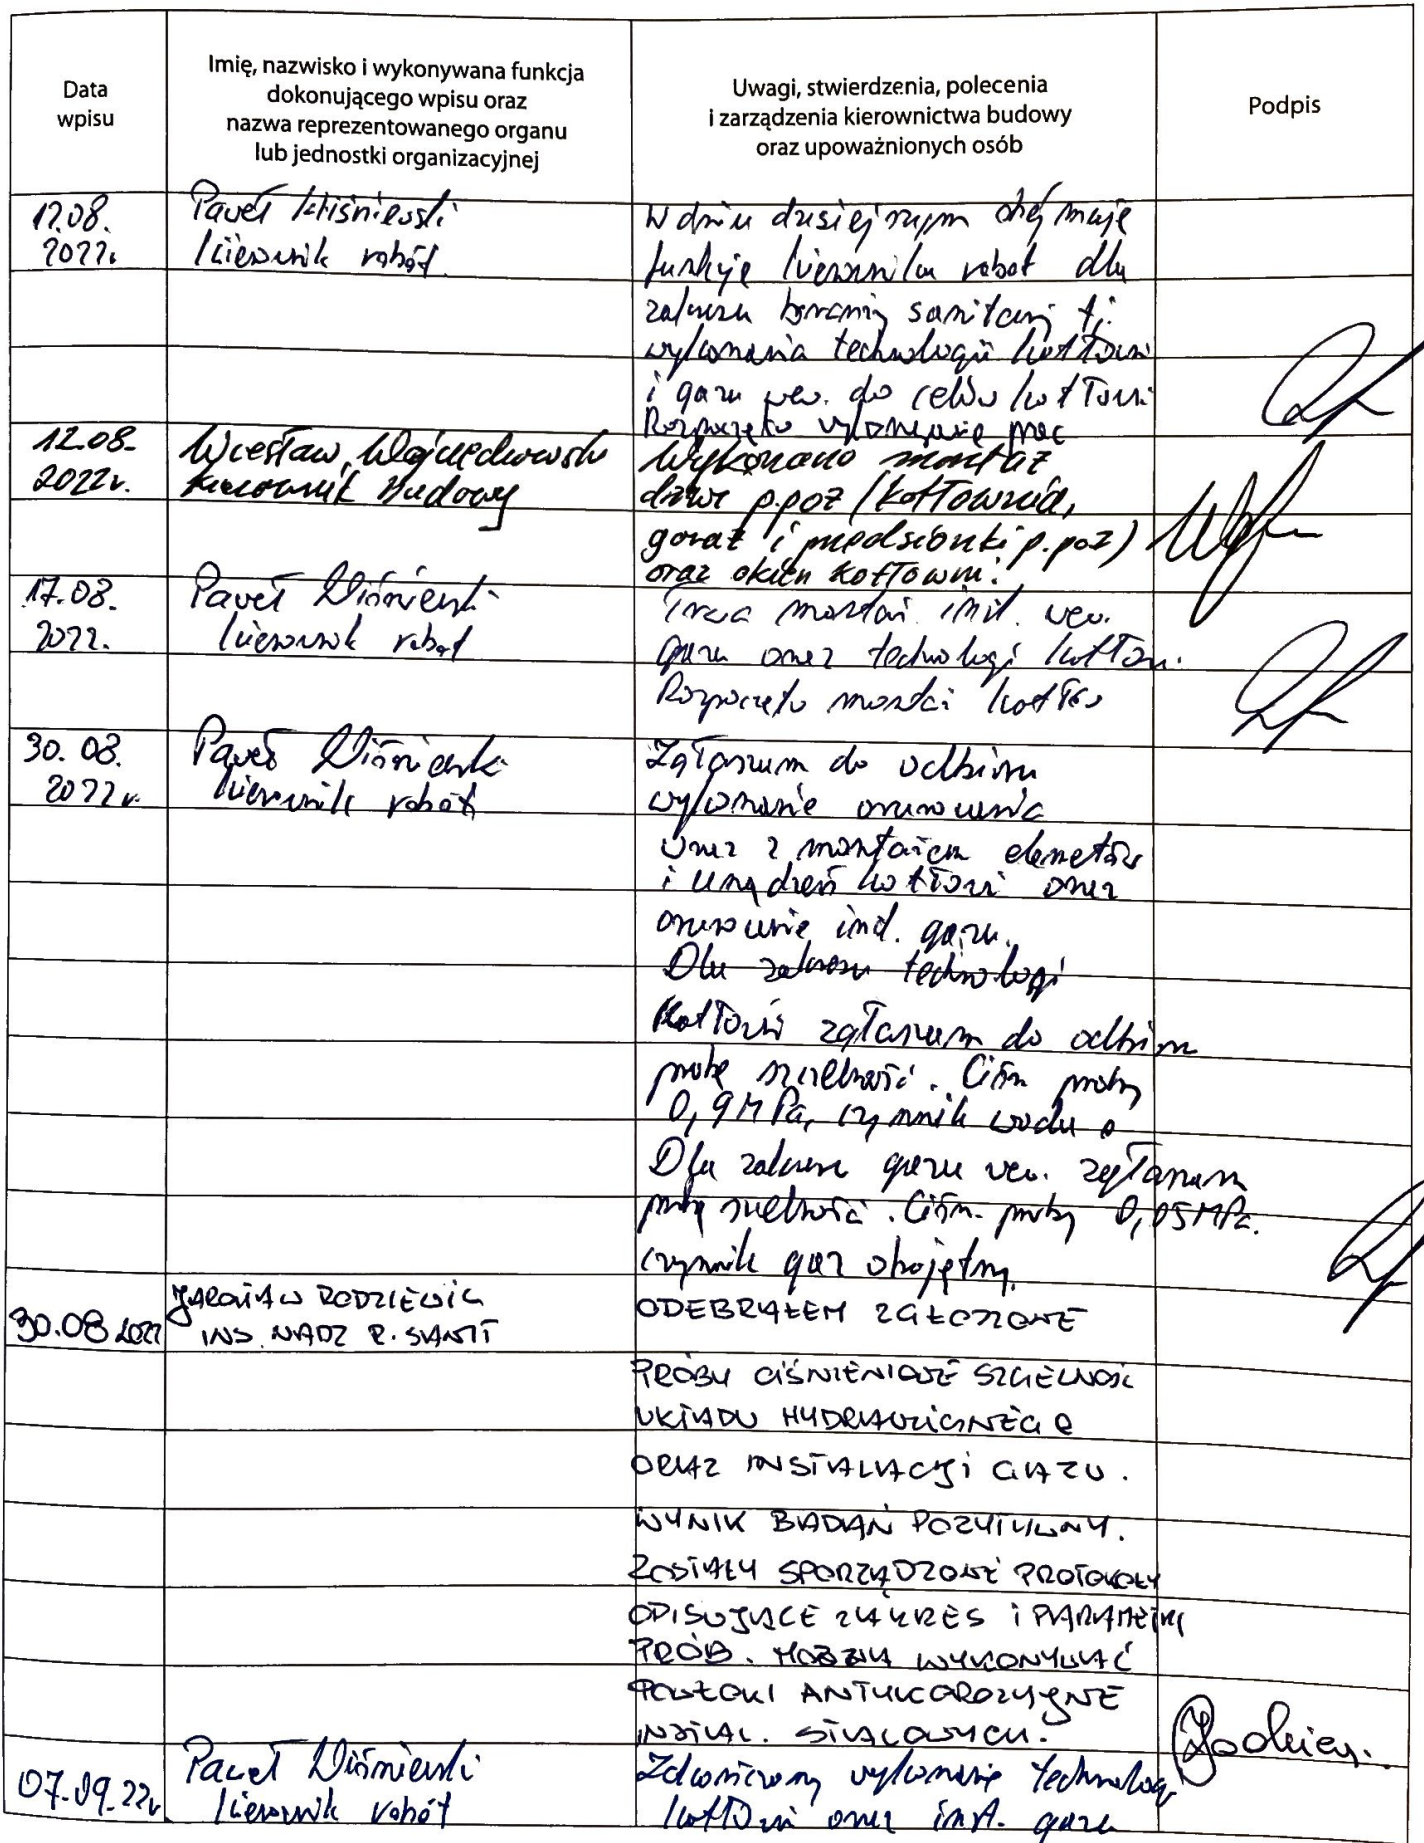 Data
wpisu
Imię, nazwisko i wykonywana funkcja
dokonującego wpisu oraz
nazwa reprezentowanego organu
lub jednostki organizacyjnej
Uwagi, stwierdzenia, polecenia
i zarządzenia kierownictwa budowy
oraz upoważnionych osób
Podpis
12.08.
2022.
Paweł Wiśniewski
kierownik robót
W dniu dzisiejszym obejmuję
funkcję kierownika robót dla
zakresu branży sanitarnej tj.
wykonania technologii kotłowni
i gazu wew. do celów kotłowni
Rozpoczęto wykonywanie prac
12.08.
2022r.
Wiesław Wojciechowski
Kierownik Budowy
Wykonano montaż
drzwi p.poż (kotłownia,
garaż i przedsionki p.poż)
oraz okien kotłowni.
17.08.
2022.
Paweł Wiśniewski
kierownik robót
Trwa montaż inst. wew.
gazu oraz technologi kotłow.
Rozpoczęto montaż kotłów
30.08.
2022r.
Paweł Wiśniewski
kierownik robót
Zgłaszam do odbioru
wykonanie orurowania
wraz z montażem elemetów
i urządzeń kotłowni oraz
orurowanie inst. gazu.
Dla zakresu technologi
kotłowni zgłaszam do odbioru
próbę szczelności. Ciśn próby
0,9MPa, czynnik woda.
Dla zakresu gazu wew. zgłaszam
próbę szczelności. Ciśn. próby 0,05MPa.
czynnik gaz obojętny.
30.08 2022
JAROSŁAW RODZIEWICZ
INS. NADZ R. SANIT
ODEBRAŁEM ZGŁOSZONE
PRÓBY CIŚNIENIOWE SZCZELNOŚĆ
UKŁADU HYDRAULICZNEGO
ORAZ INSTALACJI GAZU.
WYNIK BADAŃ POZYTYWNY.
ZOSTAŁY SPORZĄDZONE PROTOKOŁY
OPISUJĄCE ZAKRES I PARAMETRY
PRÓB. MOŻNA WYKONYWAĆ
POWŁOKI ANTYKOROZYJNE
INSTAL. STALOWYCH.
07.09.22r
Paweł Wiśniewski
kierownik robót
Zakończono wykonanie technologi
kotłowni oraz inst. gazu